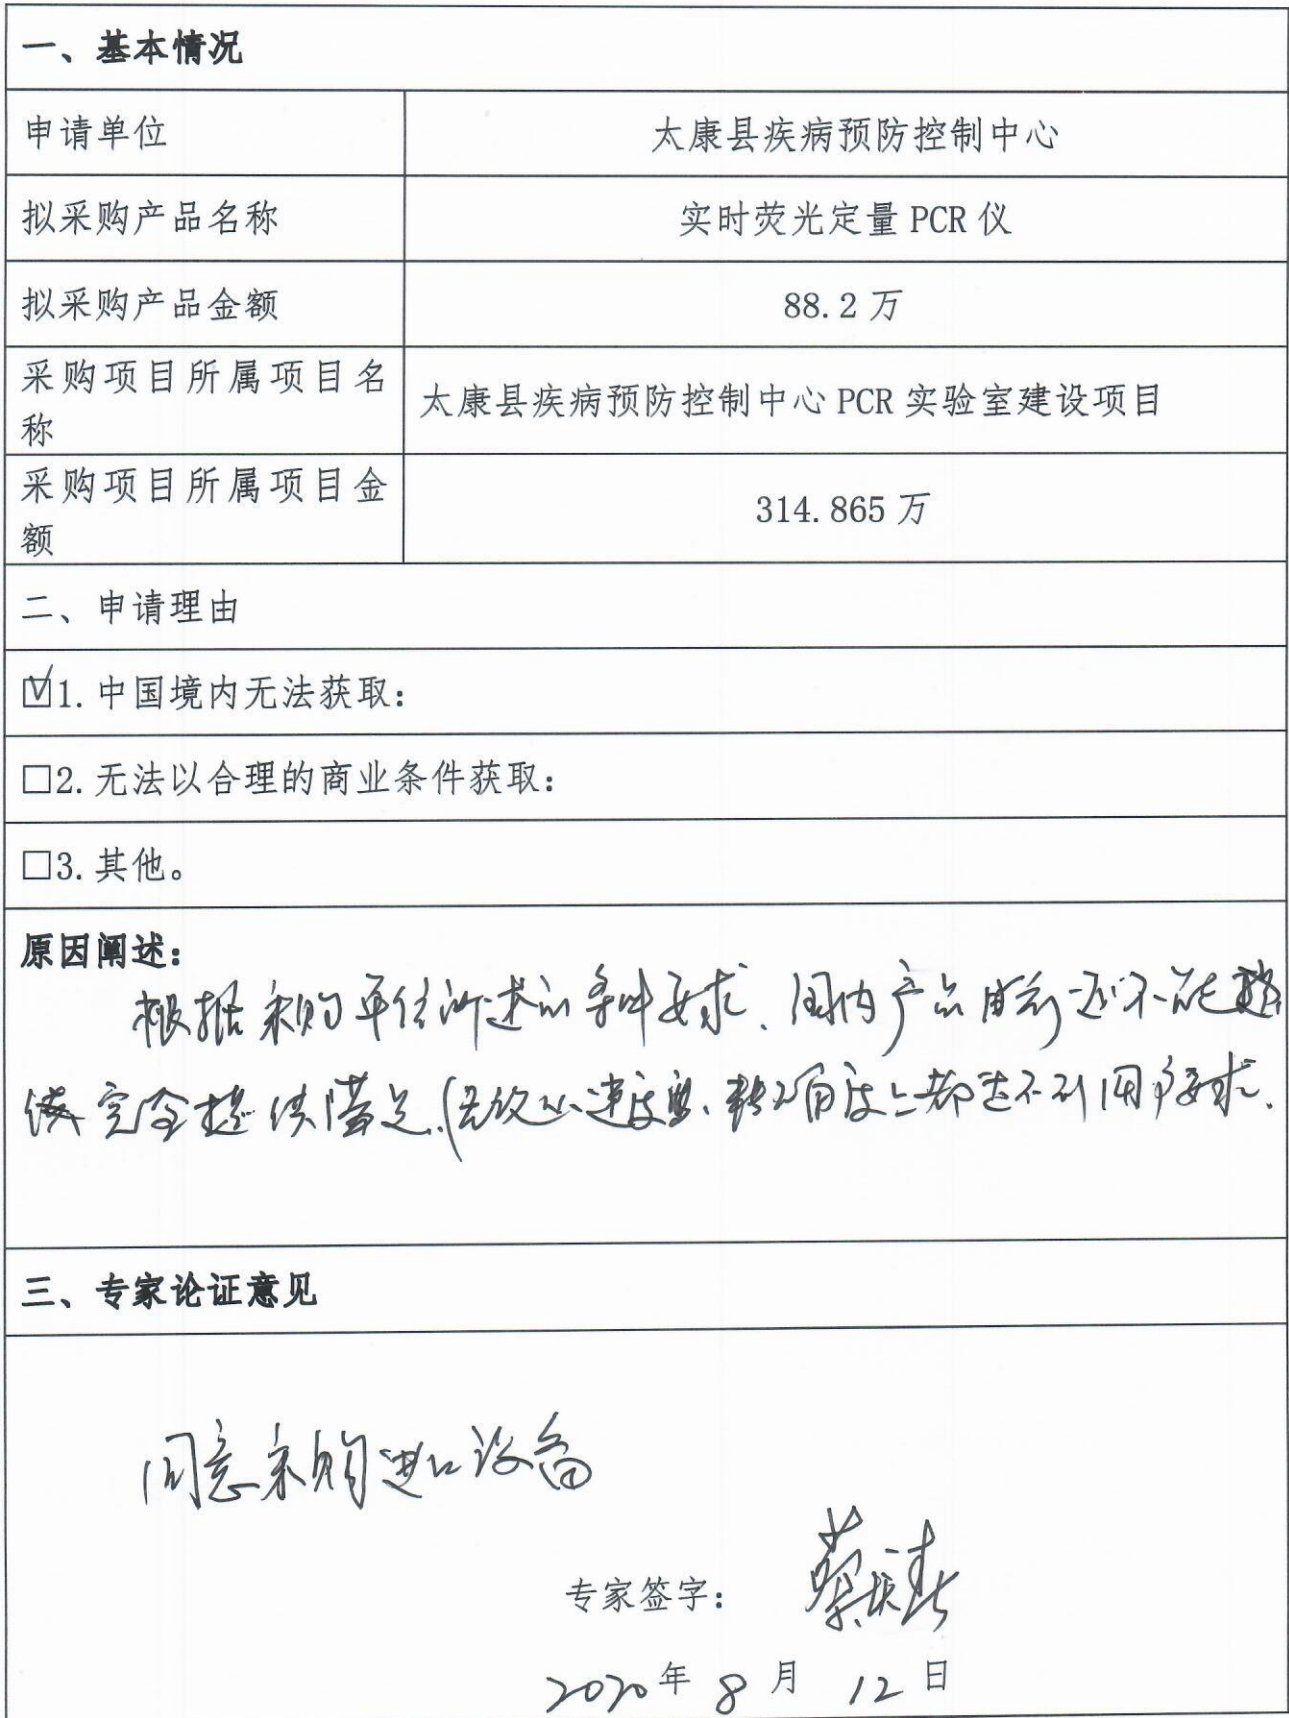 一、基本情况
申请单位
太康县疾病预防控制中心
拟采购产品名称
实时荧光定量 PCR 仪
拟采购产品金额
88.2 万
采购项目所属项目名
称
太康县疾病预防控制中心 PCR 实验室建设项目
采购项目所属项目金
额
314.865 万
二、申请理由
☑1. 中国境内无法获取：
□2. 无法以合理的商业条件获取：
□3. 其他。
原因阐述：
根据采购单位所述的条件要求、国内产品目前还不能
完全提供满足. 速度 上都达不到用户要求.
三、专家论证意见
同意采购进口设备
专家签字： 蔡
2020 年 8 月 12 日